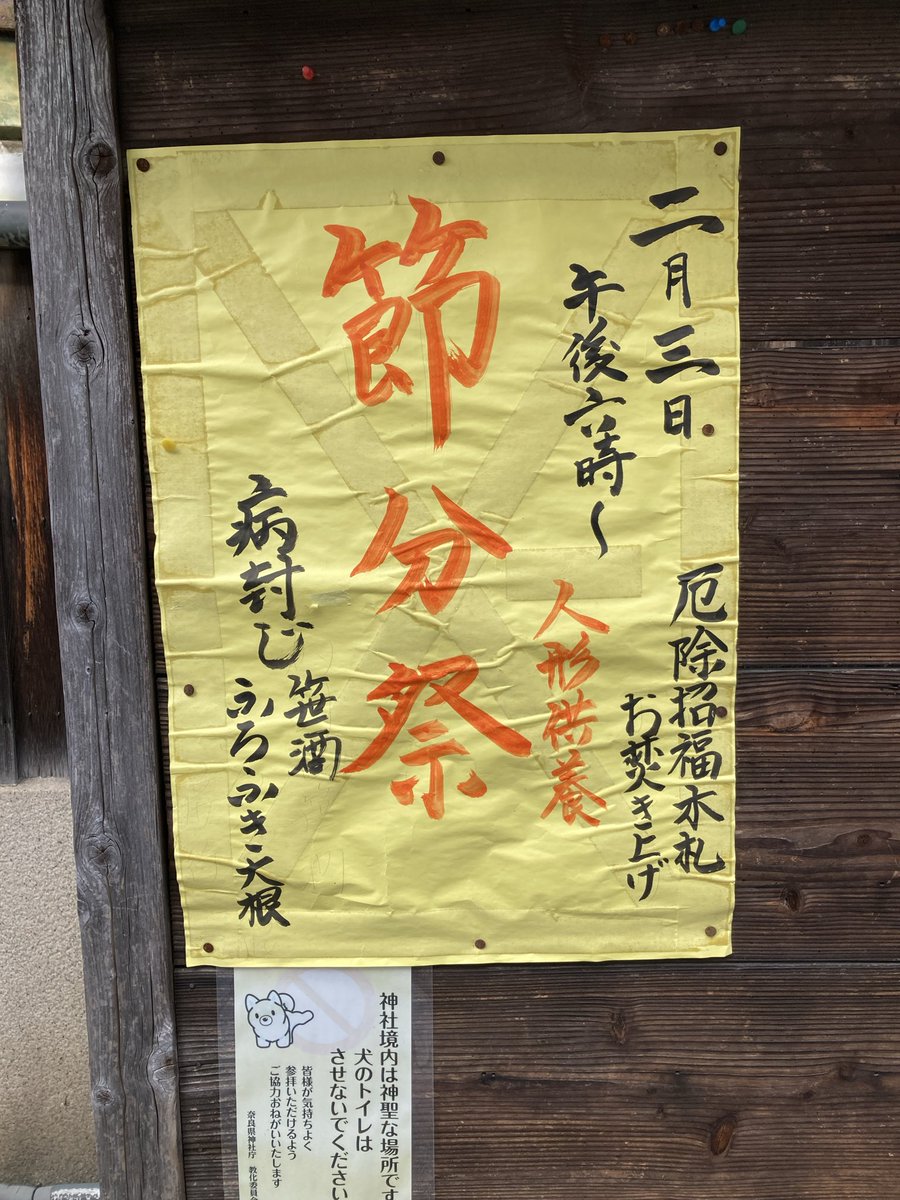 二月三日
午後六時〜
厄除招福木札
お焚き上げ
人形供養
節分祭
笹酒
病封じ
ふろふき大根
神社境内は神聖な場所です
犬のトイレは
させないでください
皆様が気持ちよく
参拝いただけるよう
ご協力おねがいいたします
奈良県神社庁 教化委員会